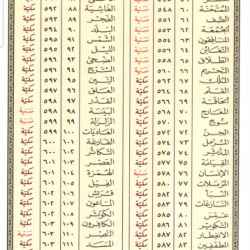 الممتحنة ٦٠ ٥٤٩ مدنية الغاشية ٨٨ ٥٩٢ مكية
الصف ٦١ ٥٥١ مدنية الفجر ٨٩ ٥٩٣ مكية
الجمعة ٦٢ ٥٥٣ مدنية البلد ٩٠ ٥٩٤ مكية
المنافقون ٦٣ ٥٥٤ مدنية الشمس ٩١ ٥٩٥ مكية
التغابن ٦٤ ٥٥٦ مدنية الليل ٩٢ ٥٩٥ مكية
الطلاق ٦٥ ٥٥٨ مدنية الضحى ٩٣ ٥٩٦ مكية
التحريم ٦٦ ٥٦٠ مدنية الشرح ٩٤ ٥٩٦ مكية
الملك ٦٧ ٥٦٢ مكية التين ٩٥ ٥٩٧ مكية
القلم ٦٨ ٥٦٤ مكية العلق ٩٦ ٥٩٧ مكية
الحاقة ٦٩ ٥٦٦ مكية القدر ٩٧ ٥٩٨ مكية
المعارج ٧٠ ٥٦٨ مكية البينة ٩٨ ٥٩٨ مدنية
نوح ٧١ ٥٧٠ مكية الزلزلة ٩٩ ٥٩٩ مدنية
الجن ٧٢ ٥٧٢ مكية العاديات ١٠٠ ٥٩٩ مكية
المزمل ٧٣ ٥٧٤ مكية القارعة ١٠١ ٦٠٠ مكية
المدثر ٧٤ ٥٧٥ مكية التكاثر ١٠٢ ٦٠٠ مكية
القيامة ٧٥ ٥٧٧ مكية العصر ١٠٣ ٦٠١ مكية
الإنسان ٧٦ ٥٧٨ مدنية الهمزة ١٠٤ ٦٠١ مكية
المرسلات ٧٧ ٥٨٠ مكية الفيل ١٠٥ ٦٠١ مكية
النبأ ٧٨ ٥٨٢ مكية قريش ١٠٦ ٦٠٢ مكية
النازعات ٧٩ ٥٨٣ مكية الماعون ١٠٧ ٦٠٢ مكية
عبس ٨٠ ٥٨٥ مكية الكوثر ١٠٨ ٦٠٢ مكية
التكوير ٨١ ٥٨٦ مكية الكافرون ١٠٩ ٦٠٣ مكية
الانفطار ٨٢ ٥٨٧ مكية النصر ١١٠ ٦٠٣ مدنية
المطففين ٨٣ ٥٨٧ مكية المسد ١١١ ٦٠٣ مكية